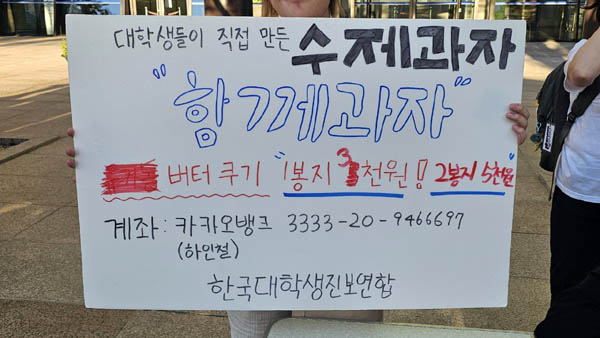 대학생들이 직접 만든 수제과자
"함께과자"
버터쿠키 "1봉지 3천원! 2봉지 5천원"
계좌: 카카오뱅크 3333-20-9466697
(하인철)
한국대학생진보연합